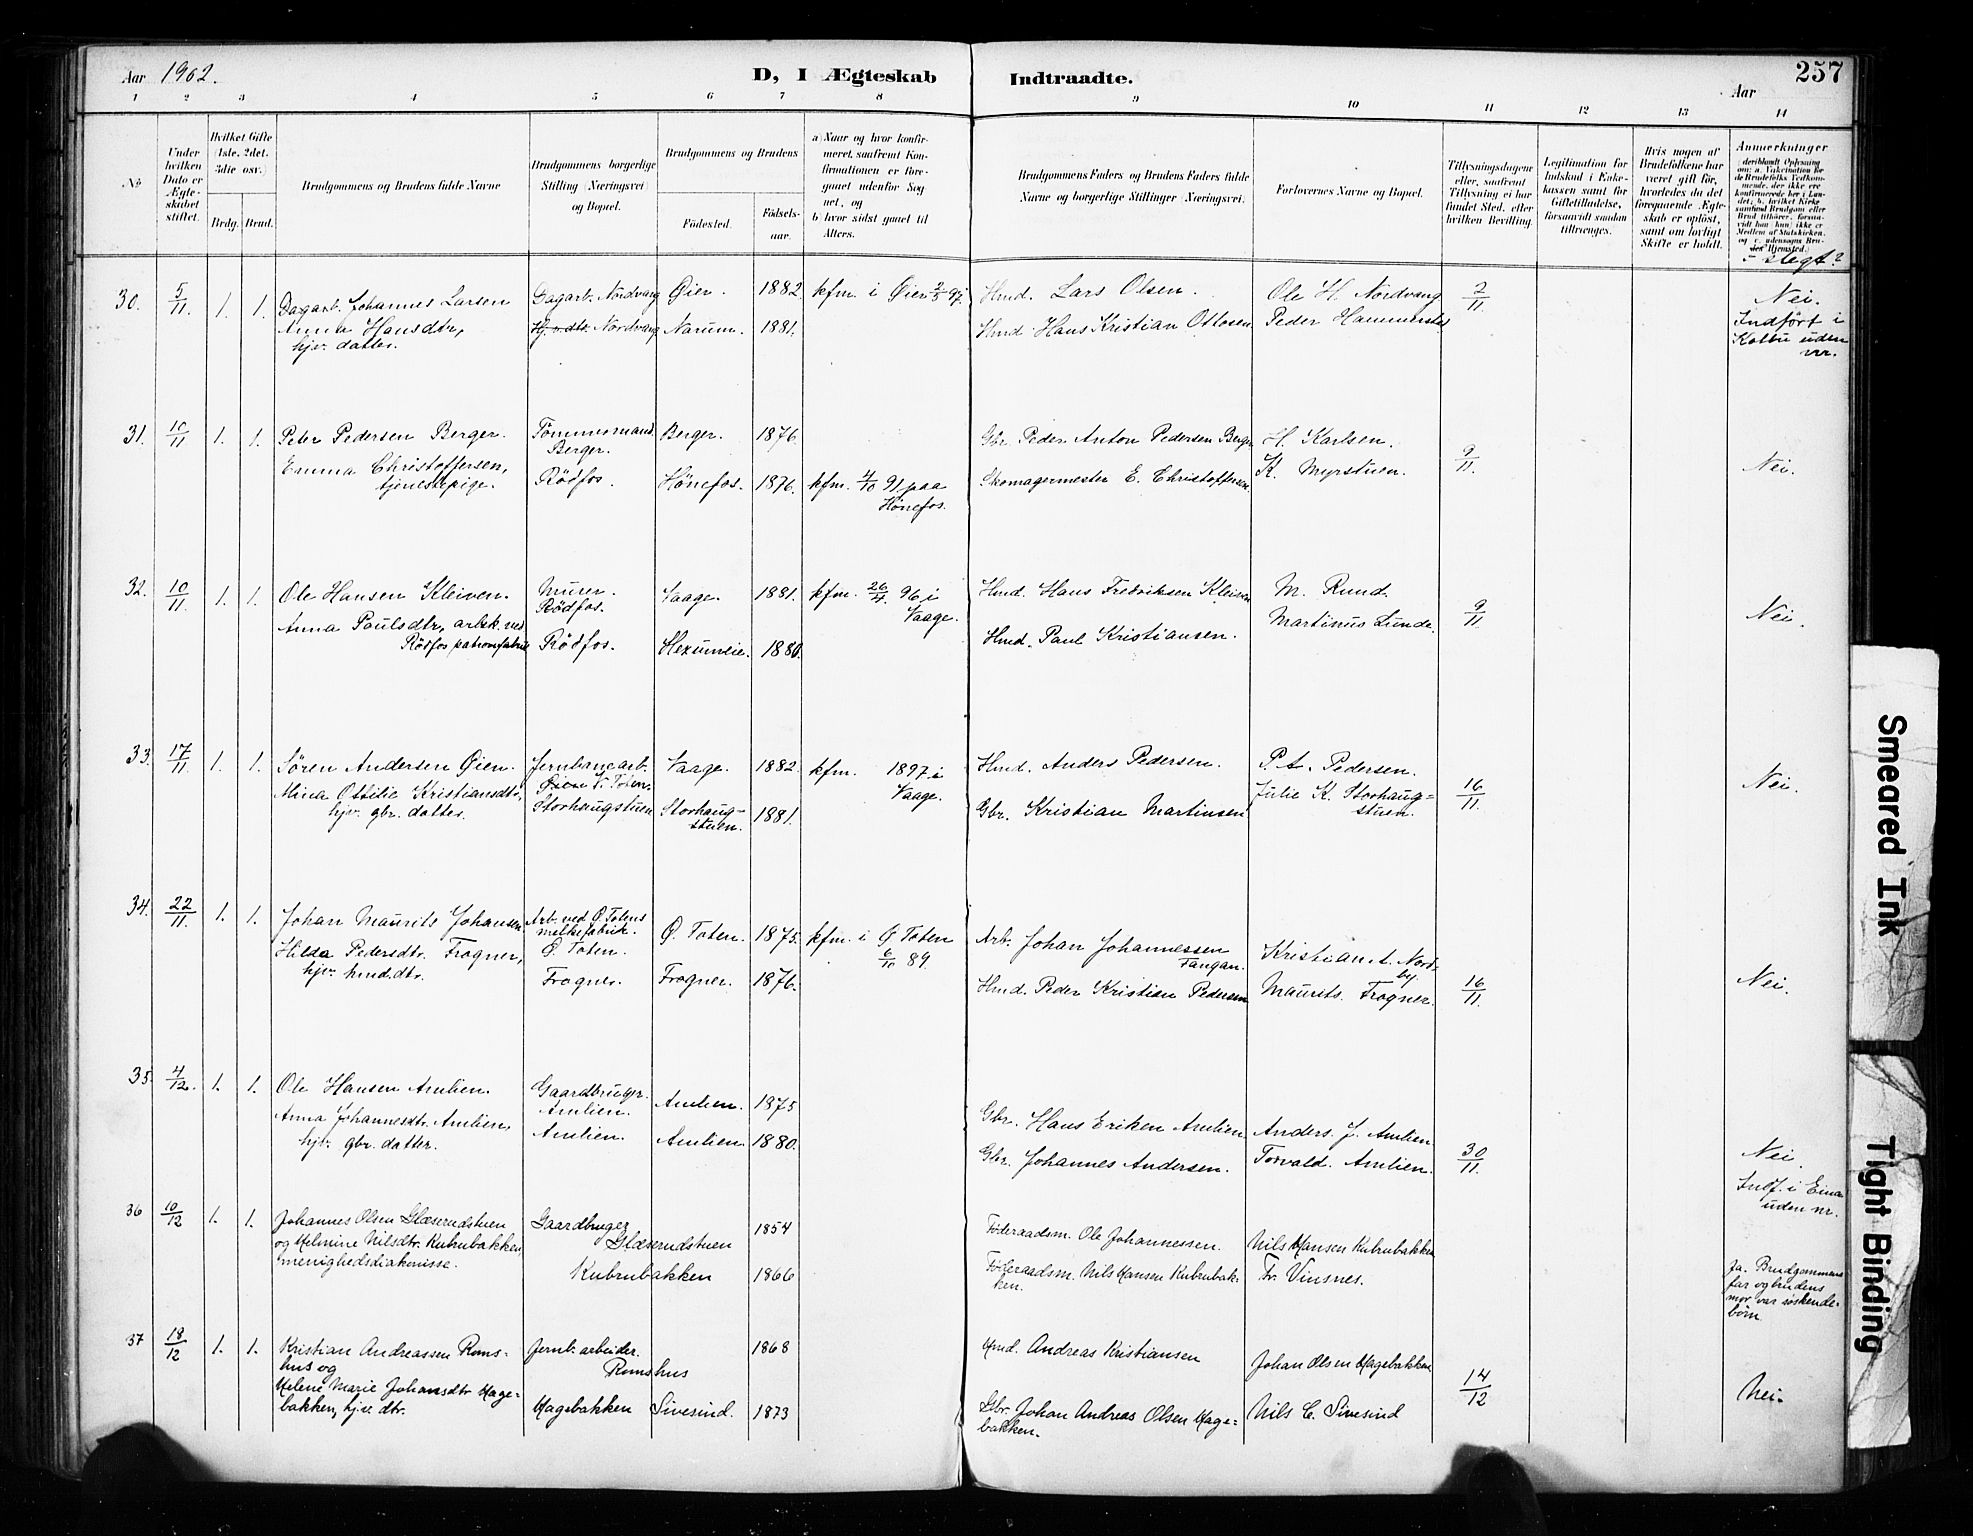 Aar 1902.
D, I Ægteskab Indtraadte.
257
Aar
1 2 3 4 5 6 7 8 9 10 11 12 13 14
No
Under hvilken Dato er Ægteskabet stiftet.
Hvilket Gifte (1ste, 2det, 3die osv.)
Brdg. Brud.
Brudgommens og Brudens fulde Navne
Brudgommens borgerlige Stilling (Næringsvei) og Bopæl.
Brudgommens og Brudens
Fødested.
Fødselsaar.
a) Naar og hvor konfirmeret, saafremt Konfirmationen er foregaaet udenfor Sognet, og
b) hvor sidst gaaet til Alters.
Brudgommens Faders og Brudens Faders fulde Navne og borgerlige Stillinger (Næringsvei).
Forlovernes Navne og Bopæl.
Tillysningsdagene eller, saafremt Tillysning ei har fundet Sted, efter hvilken Bevilling.
Legitimation for Indskud i Enkekassen samt for Giftetilladelse, forsaavidt saadan tiltrænges.
Hvis nogen af Brudefolkene har været gift før, hvorledes da det foregaaende Ægteskab er opløst, samt om lovligt Skifte er holdt.
Anmerkninger
i slegt?
30. 5/11 1. 1. Dagarb. Johannes Larsen Dagarb. Nordvang Øier. 1882. kfm. i Øier 2/5 97. Hmd. Lars Olsen. Ole H. Nordvang 2/11 Nei.
Anna Hansdtr, Hj.v.dtr. Nordvang Narum. 1881. Hmd. Hans Kristian Ottosen. Peder Hammerstad Indført i
hjv. datter. Kolbu uden
nr.
31. 10/11 1. 1. Peter Pedersen Berger. Tømmermand. Berger. 1876. Gbr. Peder Anton Pedersen Berger H. Karlsen. 9/11. Nei.
Berger.
Emma Christoffersen, Rödfos. Hönefos. 1876. kfm. 4/10 91 paa Skomagermester E. Christoffersen. K. Myrstuen.
tjenestepige. Hönefos.
32. 10/11 1. 1. Ole Hansen Kleiven. Murer. Vaage. 1881. kfm. 26/4 96 i Hmd. Hans Fredriksen Kleiven M. Rund. 9/11 Nei.
Rödfos. Vaage.
Anna Paulsdtr, arbek. ved Rödfos. Hexumeie. 1880. Hmd. Paul Kristiansen. Martinus Lunde.
Rödfos patronfabrik
33. 17/11. 1. 1. Sören Andersen Øien. Jernbanearb. Vaage. 1882. kfm. 1897 i Hmd. Anders Pedersen. P. A. Pedersen. 16/11. Nei.
Øien V. Toten. Vaage.
Mina Ottilie Kristiansdtr, Storhaugstuen Storhaug- 1881. Gbr. Kristian Martinsen Julie K. Storhaug-
hjv. gbr. datter. stuen. stuen.
34. 22/11. 1. 1. Johan Maurits Johansen Arb. ved Ø. Totens Ø. Toten. 1875. kfm. i Ø Toten Arb. Johan Johannessen Kristian A. Nord- 16/11. Nei.
melkefabrik. 6/10 89. Tangan. by
Ø. Toten.
Hilda Pedersdtr. Frogner, Frogner. Frogner. 1876. Hmd. Peder Kristian Pedersen Maurits. Frogner.
hjv. hmd.dtr.
35. 4/12. 1. 1. Ole Hansen Amlien. Gaardbruger. Amlien. 1875 Gbr. Hans Eriksen Amlien Anders. J. Amlien 30/11. Nei.
Amlien.
Anna Johannesdtr. Amlien, Amlien. Amlien. 1880. Gbr. Johannes Andersen. Torvald. Amlien. Indf. i Eina
hjv. gbr. datter. uden nr.
36 10/12 1. 1. Johannes Olsen Glæserudstuen Gaardbruger 1854 Føderaadsm. Ole Johannessen. Nils Hansen Kubrubakken
Glæserudstuen
og Helmine Nilsdtr. Kubrubakken, Kubrubakken 1866 Føderaadsm. Nils Hansen Kubrubak- Fr. Vinsnes. Ja. Brudgommens
menighedsdiakonisse. ken. far og brudens
mor var søskende-
børn.
37 18/12 1. 1. Kristian Andreassen Roms- Jernb. arbeider. 1868 Hmd. Andreas Kristiansen Johan Olsen Hagebakken 14/12 Nei.
hus og Romshus
Helene Marie Johansdtr Hage- Hagebakken Sivesind. 1873 Gbr. Johan Andreas Olsen Hage- Nils C. Sivesind
bakken, hjv. dtr. bakken.
Smeared Ink
Tight Binding